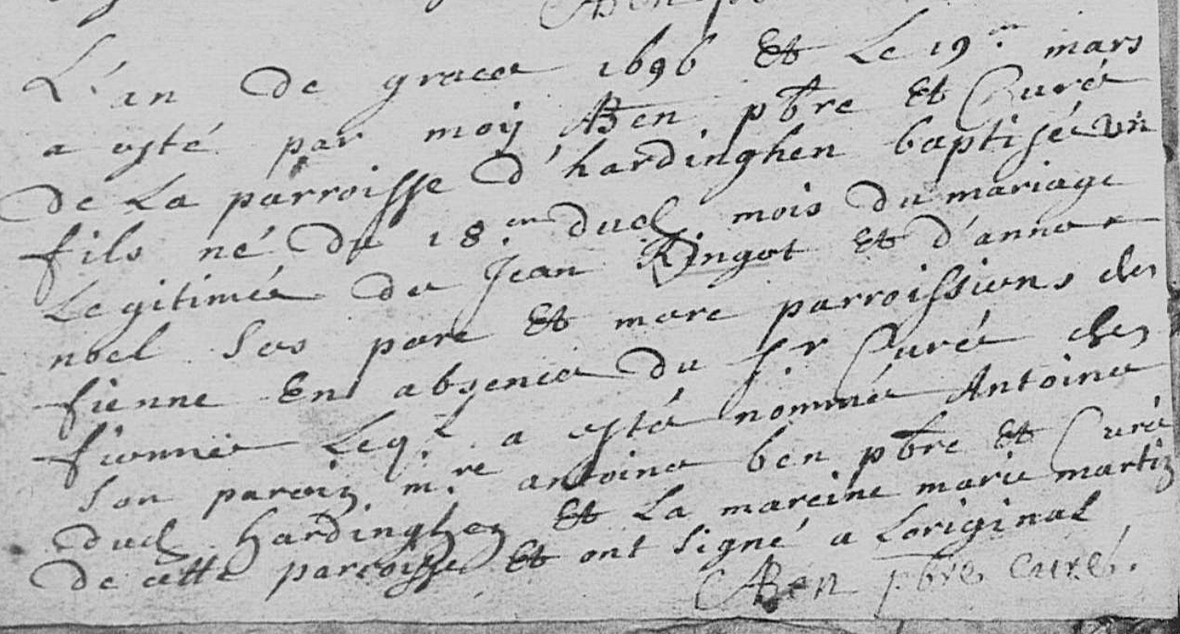 L'an de grace 1696 et Le 19.me mars
a esté par moy ABen pbre et Curé
de La parroisse d'hardinghen baptisé un
fils né du 18.me dud. mois du mariage
Legitime de Jean Ringot et d'anne
noel Ses pere et mere parroissiens de
fienne En absence du Sr Curé de
fienne Leql. a esté nommé Antoine
Son parein m.re antoine ben pbre et Curé
dud. hardinghen et La mareine marie martin
de cette parroisse et ont signé a Loriginal
ABen pbre curé.